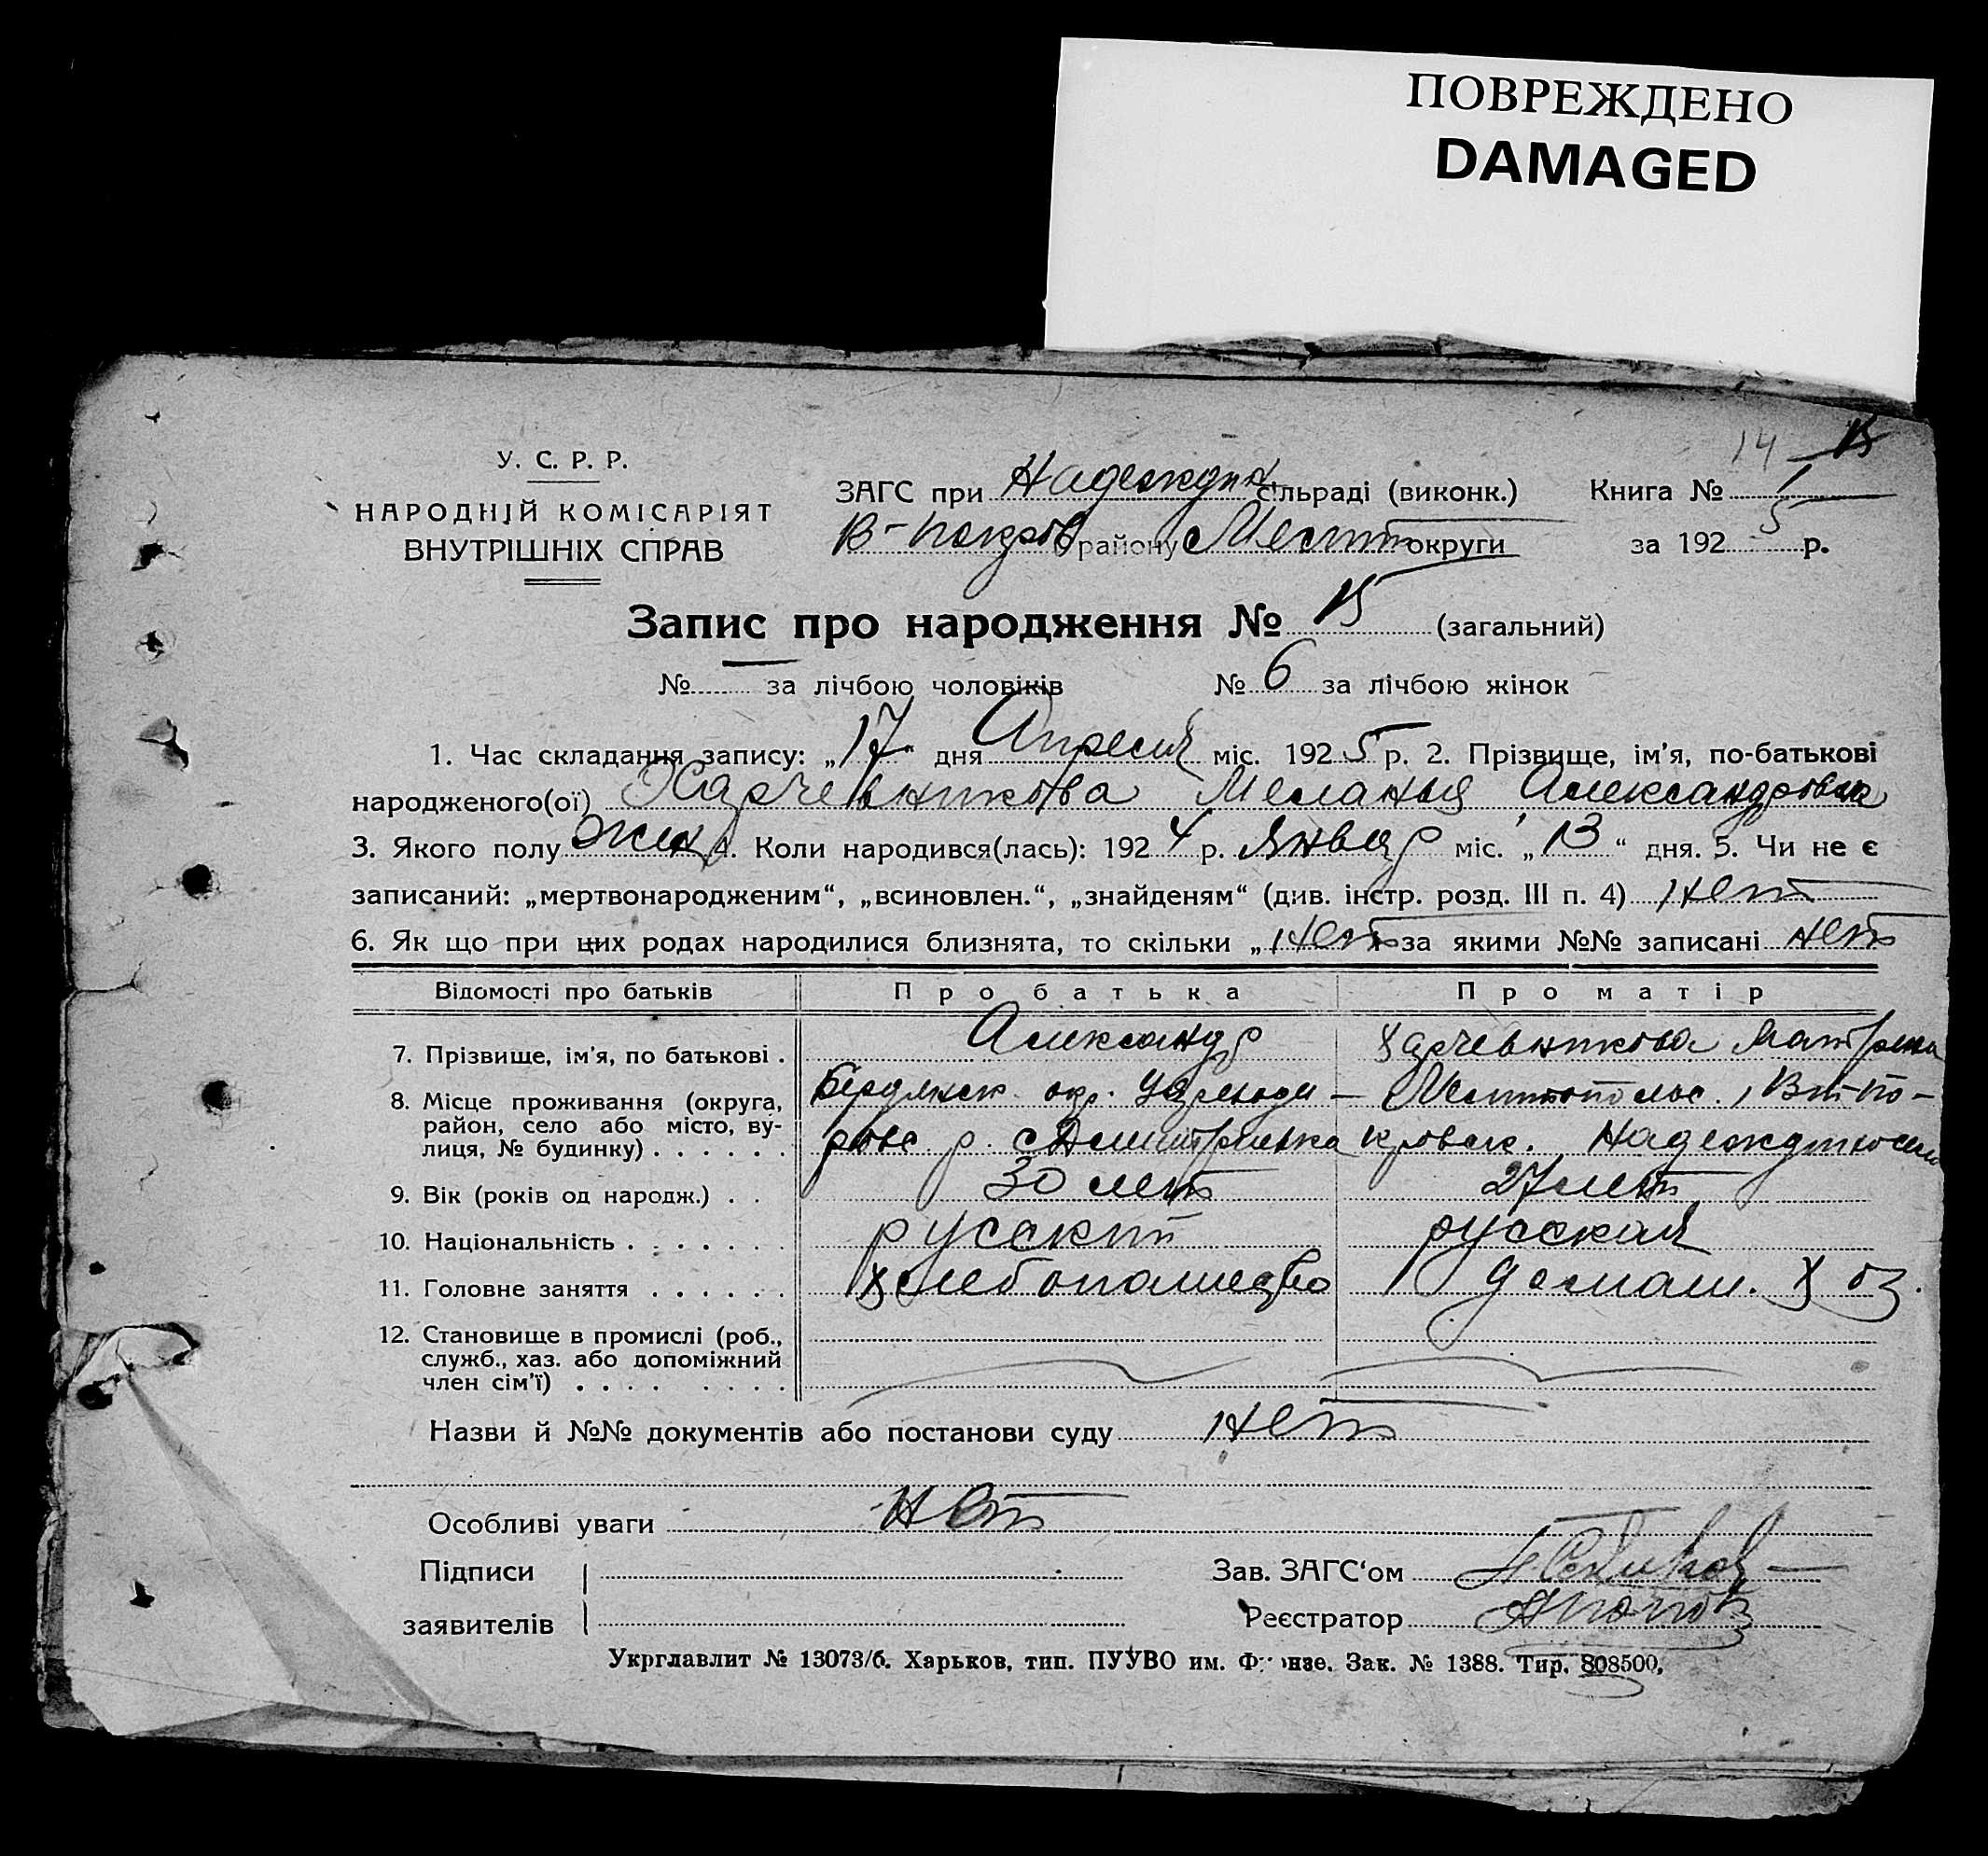 ПОВРЕЖДЕНО
DAMAGED
14 15
У. С. Р. Р.
НАРОДНІЙ КОМІСАРІЯТ
ВНУТРІШНІХ СПРАВ
ЗАГС при Надеждин сільраді (виконк.) Книга № 1
В-Покров району Мелит округи за 1925 р.
Запис про народження № 15 (загальний)
№ — за лічбою чоловіків № 6 за лічбою жінок
1. Час складання запису: „17“ дня Апреля міс. 1925 р. 2. Прізвище, ім'я, по-батькові
народженого(ої) Харчевникова Меланья Александровна
3. Якого полу жен 4. Коли народився(лась): 1924 р. Январ міс. „13“ дня. 5. Чи не є
записаний: „мертвонародженим“, „всиновлен.“, „знайденям“ (див. інстр. розд. III п. 4) нет
6. Як що при цих родах народилися близнята, то скільки „нет за якими №№ записані нет
Відомості про батьків Про батька Про матір
7. Прізвище, ім'я, по батькові . Александр Харчевникова Матрена
8. Місце проживання (округа, район, село або місто, вулиця, № будинку) . . . . . .
Бердянск. окр. Мелитопольс.
р. с Дмитриевка кровск.
9. Вік (років од народж.) . . 30 лет 27 лет
10. Національність . . . . . . . русский русская
11. Головне заняття . . . . . . хлебопашество домаш. хоз.
12. Становище в промислі (роб., служб., хаз. або допоміжний член сім'ї) . . . . . . . .
Назви й №№ документів або постанови суду нет
Особливі уваги нет
Підписи Зав. ЗАГС‘ом
заявителів Реєстратор
Укрглавлит № 13073/б. Харьков, тип. ПУУВО им. Фрунзе. Зак. № 1388. Тир. 808500.